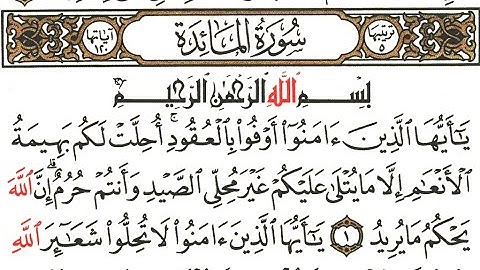 ترتيبها ٥ سُورَةُ المَائِدَةِ آياتها ١٢٠
بِسْمِ اللَّهِ الرَّحْمَٰنِ الرَّحِيمِ
يَٰٓأَيُّهَا ٱلَّذِينَ ءَامَنُوٓاْ أَوۡفُواْ بِٱلۡعُقُودِۚ أُحِلَّتۡ لَكُم بَهِيمَةُ
ٱلۡأَنۡعَٰمِ إِلَّا مَا يُتۡلَىٰ عَلَيۡكُمۡ غَيۡرَ مُحِلِّي ٱلصَّيۡدِ وَأَنتُمۡ حُرُمٌۗ إِنَّ ٱللَّهَ
يَحۡكُمُ مَا يُرِيدُ ١ يَٰٓأَيُّهَا ٱلَّذِينَ ءَامَنُواْ لَا تُحِلُّواْ شَعَٰٓئِرَ ٱللَّهِ